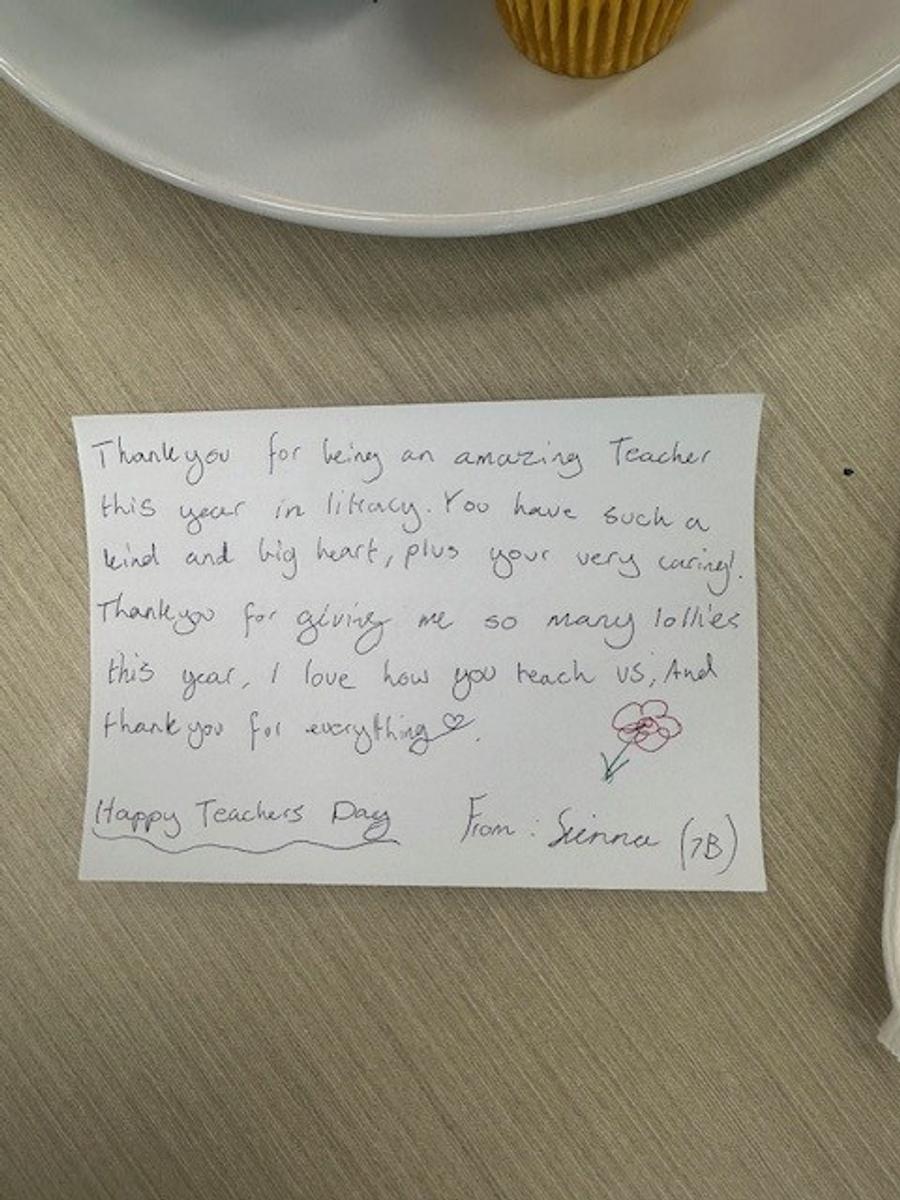 Thankyou for being an amazing Teacher
this year in litracy. You have such a
kind and big heart, plus your very caring!.
Thankyou for giving me so many lollies
this year, I love how you teach us, And
thank you for everything♡.
Happy Teachers Day From: Sienna (7B)